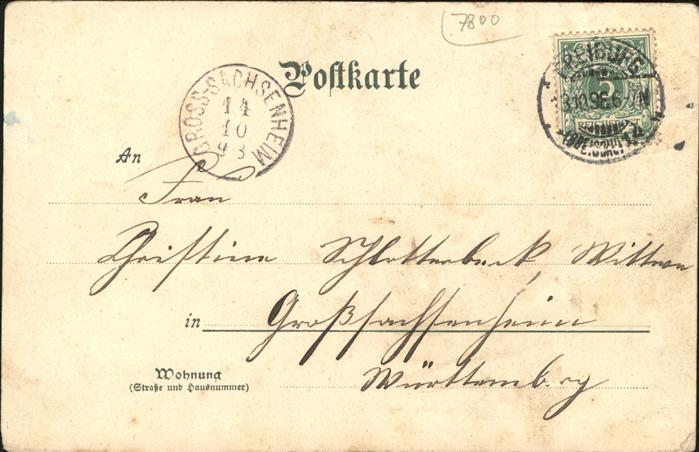 7800
Postkarte
GROSS-SACHSENHEIM
14
10
98
FREIBURG
5
An
Frau
Christine Schlotterbeck, Wittwe
in Großsachsenheim
Wohnung
(Straße und Hausnummer)
Württemberg